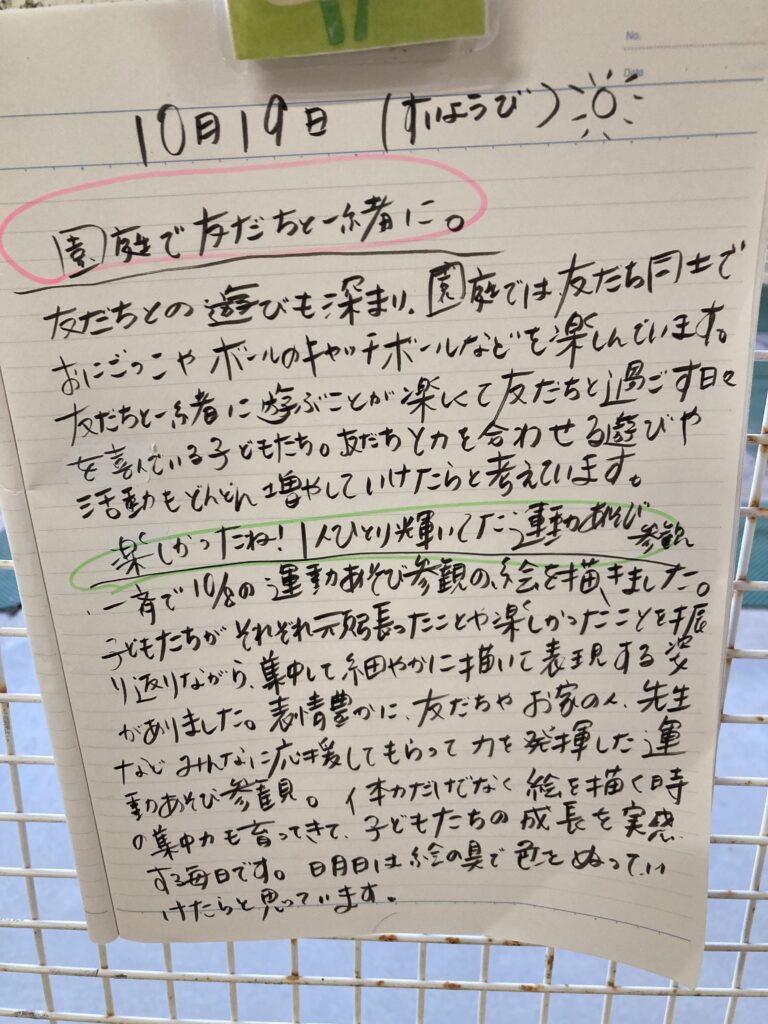 No.
Date
10月19日 (すいようび)
園庭で友だちと一緒に。
友だちとの遊びも深まり、園庭では友だち同士で
おにごっこやボールのキャッチボールなどを楽しんでいます。
友だちと一緒に遊ぶことが楽しくて友だちと過ごす日々
を喜んでいる子どもたち。友だちと力を合わせる遊びや
活動もどんどん増やしていけたらと考えています。
楽しかったね!1人ひとり輝いてた運動あそび
参観
一斉で10/8の運動あそび参観の絵を描きました。
子どもたちがそれぞれ頑張ったことや楽しかったことを振
り返りながら、集中して細やかに描いて表現する姿
がありました。表情豊かに、友だちやお家の人、先生
などみんなに応援してもらって力を発揮した運
動あそび参観。体力だけでなく絵を描く時
の集中力も育ってきて、子どもたちの成長を実感
する毎日です。明日は絵の具で色をぬってい
けたらと思っています。